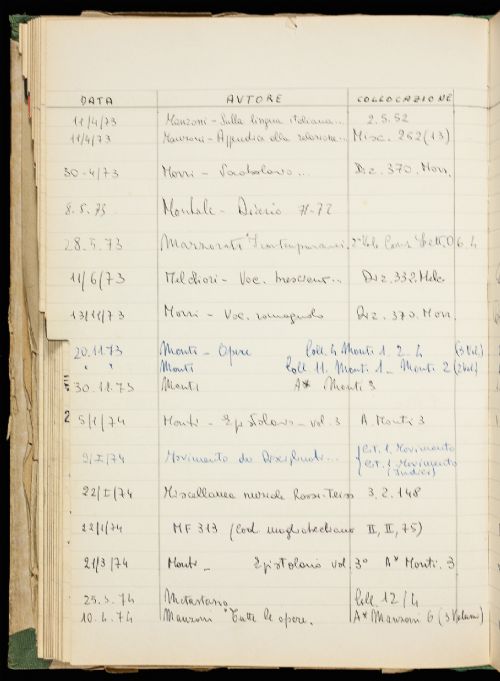 DATA AUTORE COLLOCAZIONE
11/4/73 Manzoni - Sulla lingua italiana... 2.5.52
11/4/73 Manzoni - Appendice alla relazione... Misc. 262 (13)
30-4/73 Morri - Vocabolario... Diz. 370. Morr.
8.5.73 Montale - Diario 71-72
28.5.73 Marzorati
11/6/73 Melchiori - Voc. bresciano... Diz. 332. Melc.
13/11/73 Morri - Voc. romagnolo Diz. 370. Morr.
20.11.73 Monti - Opere Coll. 4 Monti 1. 2. 4 (3 Vol.)
" " Monti Coll. 11. Monti 1 - Monti 2 (2 vol.)
30.11.73 Monti A* Monti 3
5/1/74 Monti - Epistolario - vol. 3 A. Monti 3
9/I/74 Movimento dei Disciplinati... Cit. 1. Movimento
Cit. 1. Movimento
(Indici)
22/I/74 Miscellanea nuziale Rossi-Teiss 3. 2. 148
22/1/74 MF 313 (Cod. magliabechiano II, II, 75)
21/3/74 Monti - Epistolario vol. 3° A* Monti. 3
25.3.74 Metastasio Coll 12/4
10.4.74 Manzoni "Tutte le opere. A* Manzoni 6 (3 Volumi)